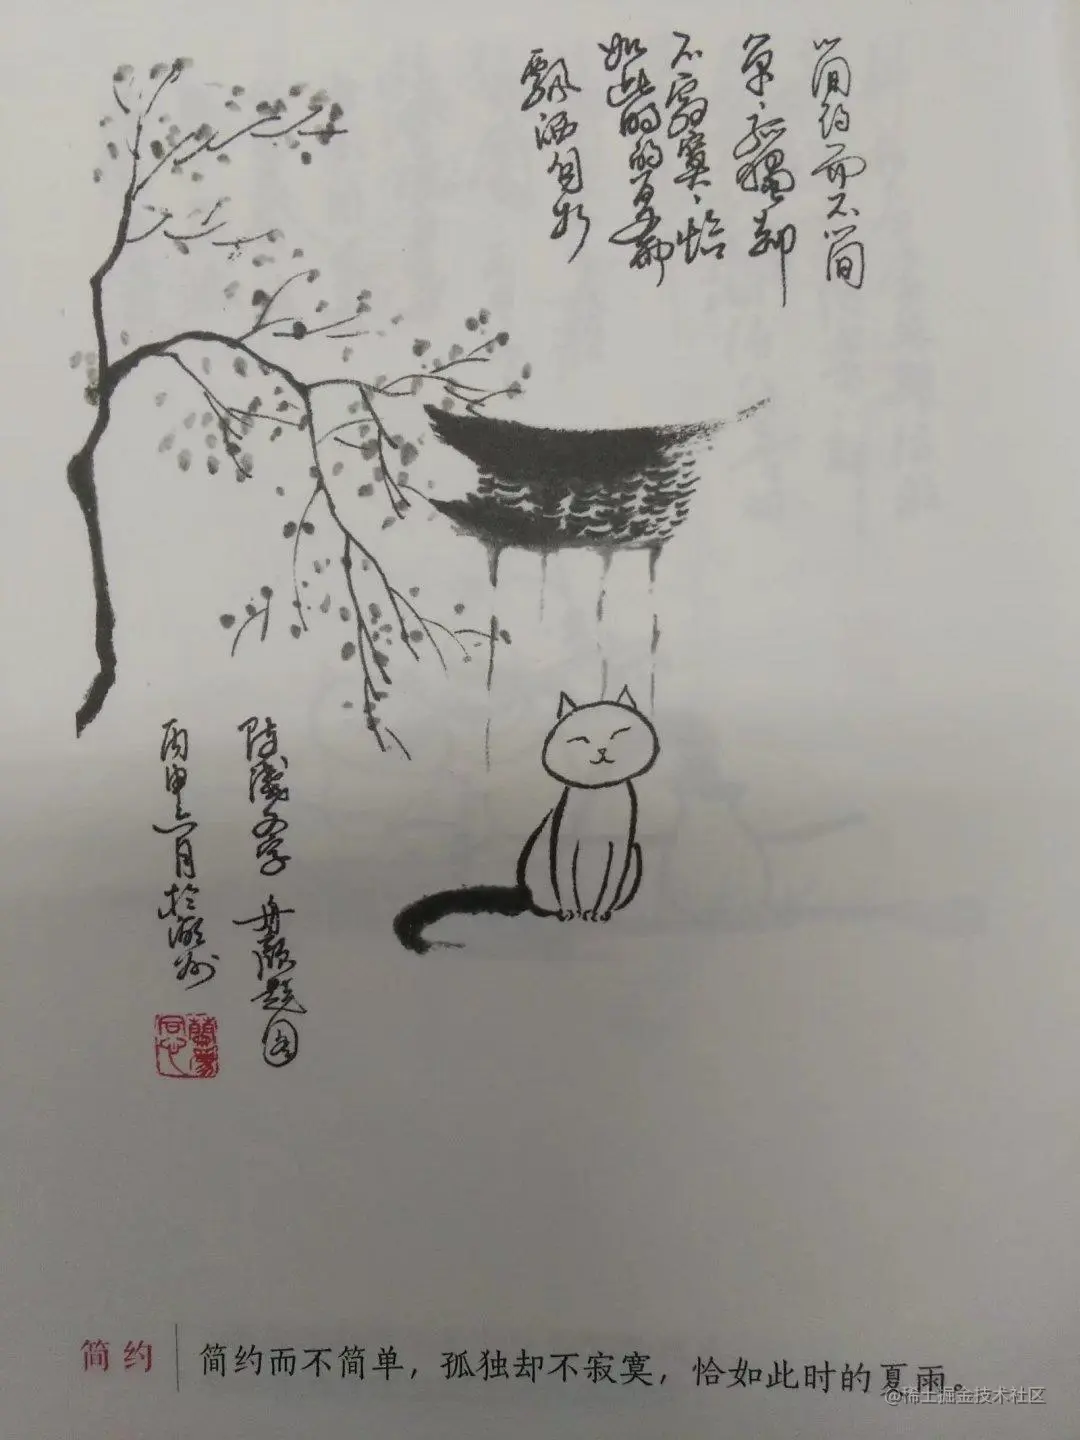 简约而不简
单，孤独却
不寂寞，恰
如此时的夏雨
飘洒自
题图
丙申六月於湖州
简约
简约而不简单，孤独却不寂寞，恰如此时的夏雨。
@稀土掘金技术社区